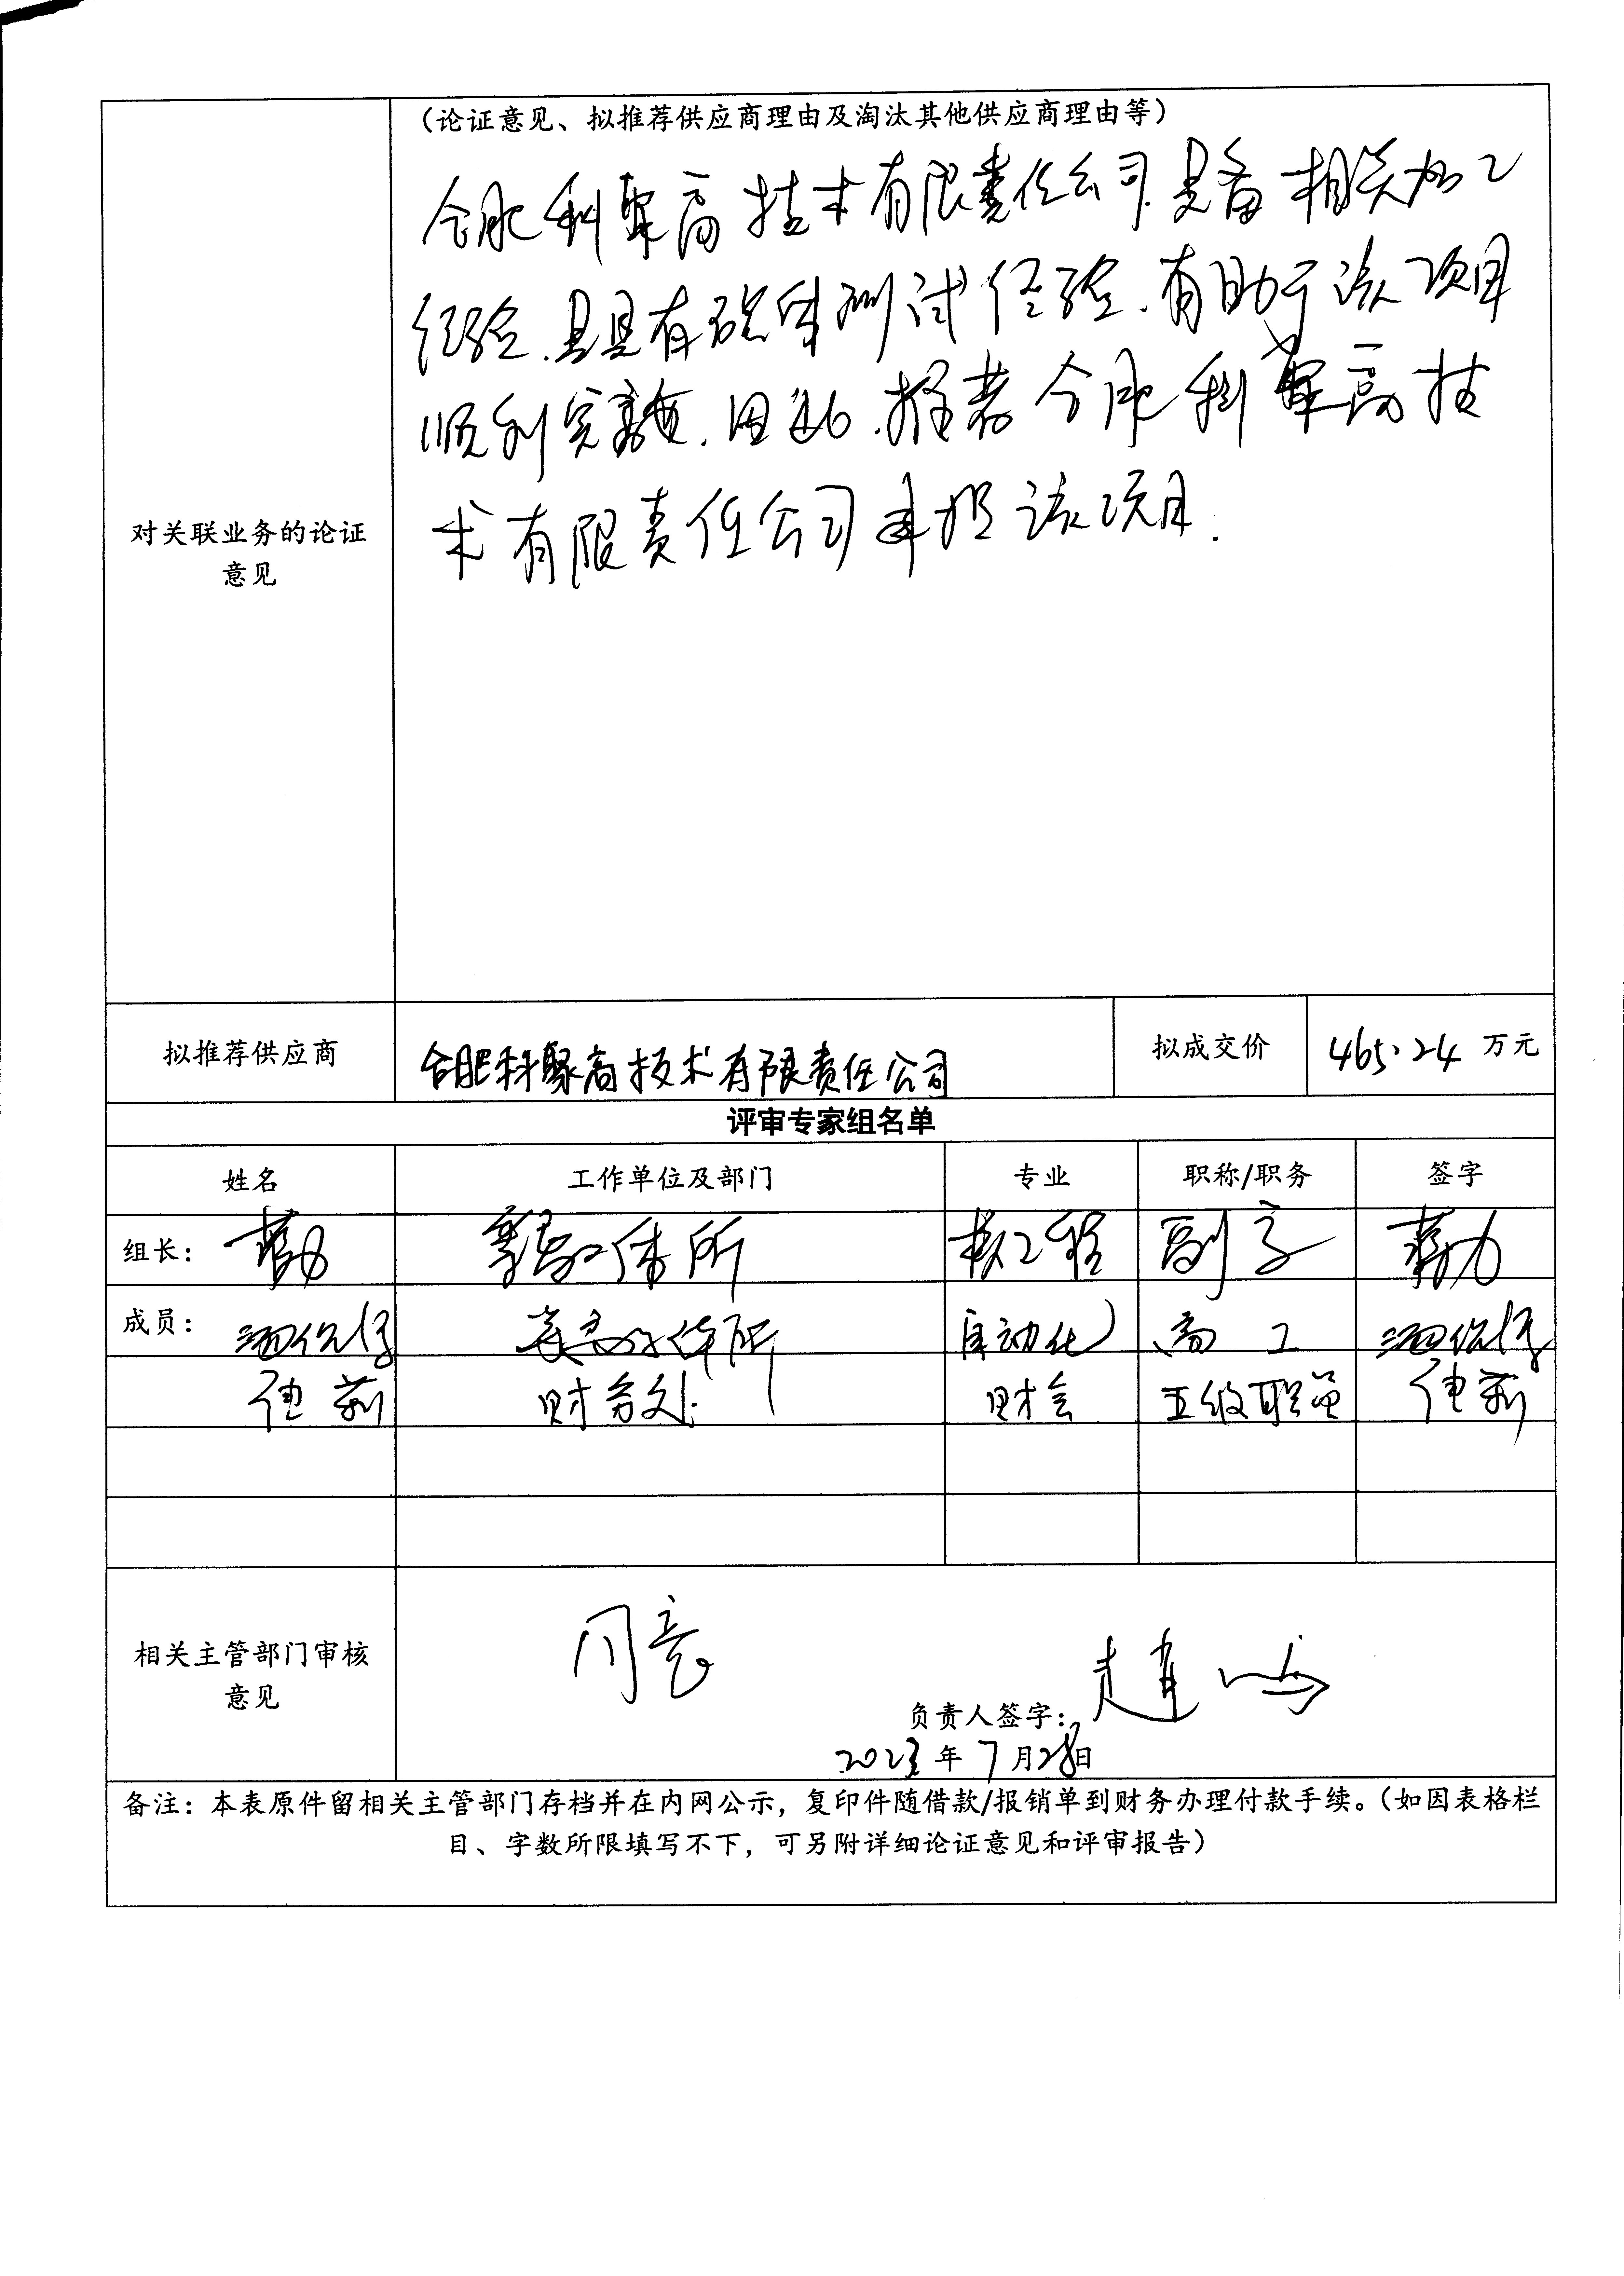 （论证意见、拟推荐供应商理由及淘汰其他供应商理由等）
合肥科聚高技术有限责任公司具备相关加工
经验，且具有磁体测试经验，有助于该项目
顺利完成，因此，推荐合肥科聚高技
术有限责任公司承担该项目.
对关联业务的论证
意见
拟推荐供应商 合肥科聚高技术有限责任公司 拟成交价 465.24 万元
评审专家组名单
姓名 工作单位及部门 专业 职称/职务 签字
组长： 等离子体所 核工程 副高
成员： 等离子体所 自动化 高工
财务处 财会 五级职员
相关主管部门审核
意见
同意
负责人签字：
2023年7月28日
备注：本表原件留相关主管部门存档并在内网公示，复印件随借款/报销单到财务办理付款手续。（如因表格栏
目、字数所限填写不下，可另附详细论证意见和评审报告）